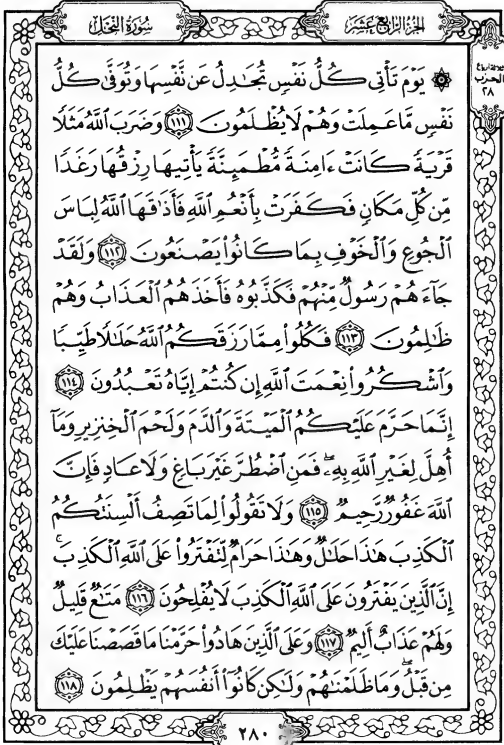 سُورَةُ النَّحْلِ
الجُزءُ الرَّابِعَ عَشَرَ
الحزب
٢٨
۞ يَوْمَ تَأْتِى كُلُّ نَفْسٍ تُجَٰدِلُ عَن نَّفْسِهَا وَتُوَفَّىٰ كُلُّ
نَفْسٍ مَّا عَمِلَتْ وَهُمْ لَا يُظْلَمُونَ ١١١ وَضَرَبَ ٱللَّهُ مَثَلًا
قَرْيَةً كَانَتْ ءَامِنَةً مُّطْمَئِنَّةً يَأْتِيهَا رِزْقُهَا رَغَدًا
مِّن كُلِّ مَكَانٍ فَكَفَرَتْ بِأَنْعُمِ ٱللَّهِ فَأَذَٰقَهَا ٱللَّهُ لِبَاسَ
ٱلْجُوعِ وَٱلْخَوْفِ بِمَا كَانُوا۟ يَصْنَعُونَ ١١٢ وَلَقَدْ
جَآءَهُمْ رَسُولٌ مِّنْهُمْ فَكَذَّبُوهُ فَأَخَذَهُمُ ٱلْعَذَابُ وَهُمْ
ظَٰلِمُونَ ١١٣ فَكُلُوا۟ مِمَّا رَزَقَكُمُ ٱللَّهُ حَلَٰلًا طَيِّبًا
وَٱشْكُرُوا۟ نِعْمَتَ ٱللَّهِ إِن كُنتُمْ إِيَّاهُ تَعْبُدُونَ ١١٤
إِنَّمَا حَرَّمَ عَلَيْكُمُ ٱلْمَيْتَةَ وَٱلدَّمَ وَلَحْمَ ٱلْخِنزِيرِ وَمَآ
أُهِلَّ لِغَيْرِ ٱللَّهِ بِهِۦ ۖ فَمَنِ ٱضْطُرَّ غَيْرَ بَاغٍ وَلَا عَادٍ فَإِنَّ
ٱللَّهَ غَفُورٌ رَّحِيمٌ ١١٥ وَلَا تَقُولُوا۟ لِمَا تَصِفُ أَلْسِنَتُكُمُ
ٱلْكَذِبَ هَٰذَا حَلَٰلٌ وَهَٰذَا حَرَامٌ لِّتَفْتَرُوا۟ عَلَى ٱللَّهِ ٱلْكَذِبَ ۚ
إِنَّ ٱلَّذِينَ يَفْتَرُونَ عَلَى ٱللَّهِ ٱلْكَذِبَ لَا يُفْلِحُونَ ١١٦ مَتَٰعٌ قَلِيلٌ
وَلَهُمْ عَذَابٌ أَلِيمٌ ١١٧ وَعَلَى ٱلَّذِينَ هَادُوا۟ حَرَّمْنَا مَا قَصَصْنَا عَلَيْكَ
مِن قَبْلُ ۖ وَمَا ظَلَمْنَٰهُمْ وَلَٰكِن كَانُوٓا۟ أَنفُسَهُمْ يَظْلِمُونَ ١١٨
٢٨٠